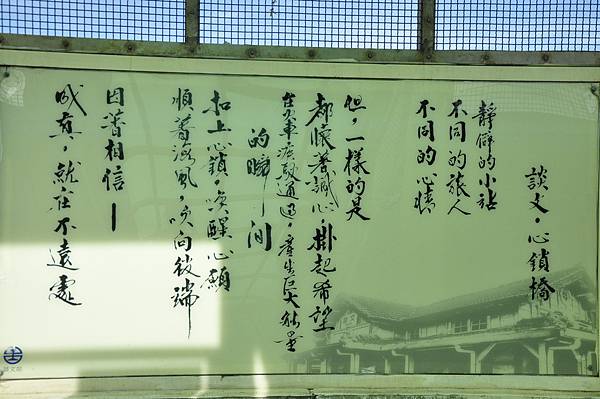 談文‧心鎖橋
靜僻的小站
不同的旅人
不同的心情
但，一樣的是
都懷著誠心，掛起希望
在火車疾駛通過，產生巨大能量
的瞬間
扣上心鎖，喚醒心願
順著海風，吹向彼端
因著相信—
成真，就在不遠處
談文站